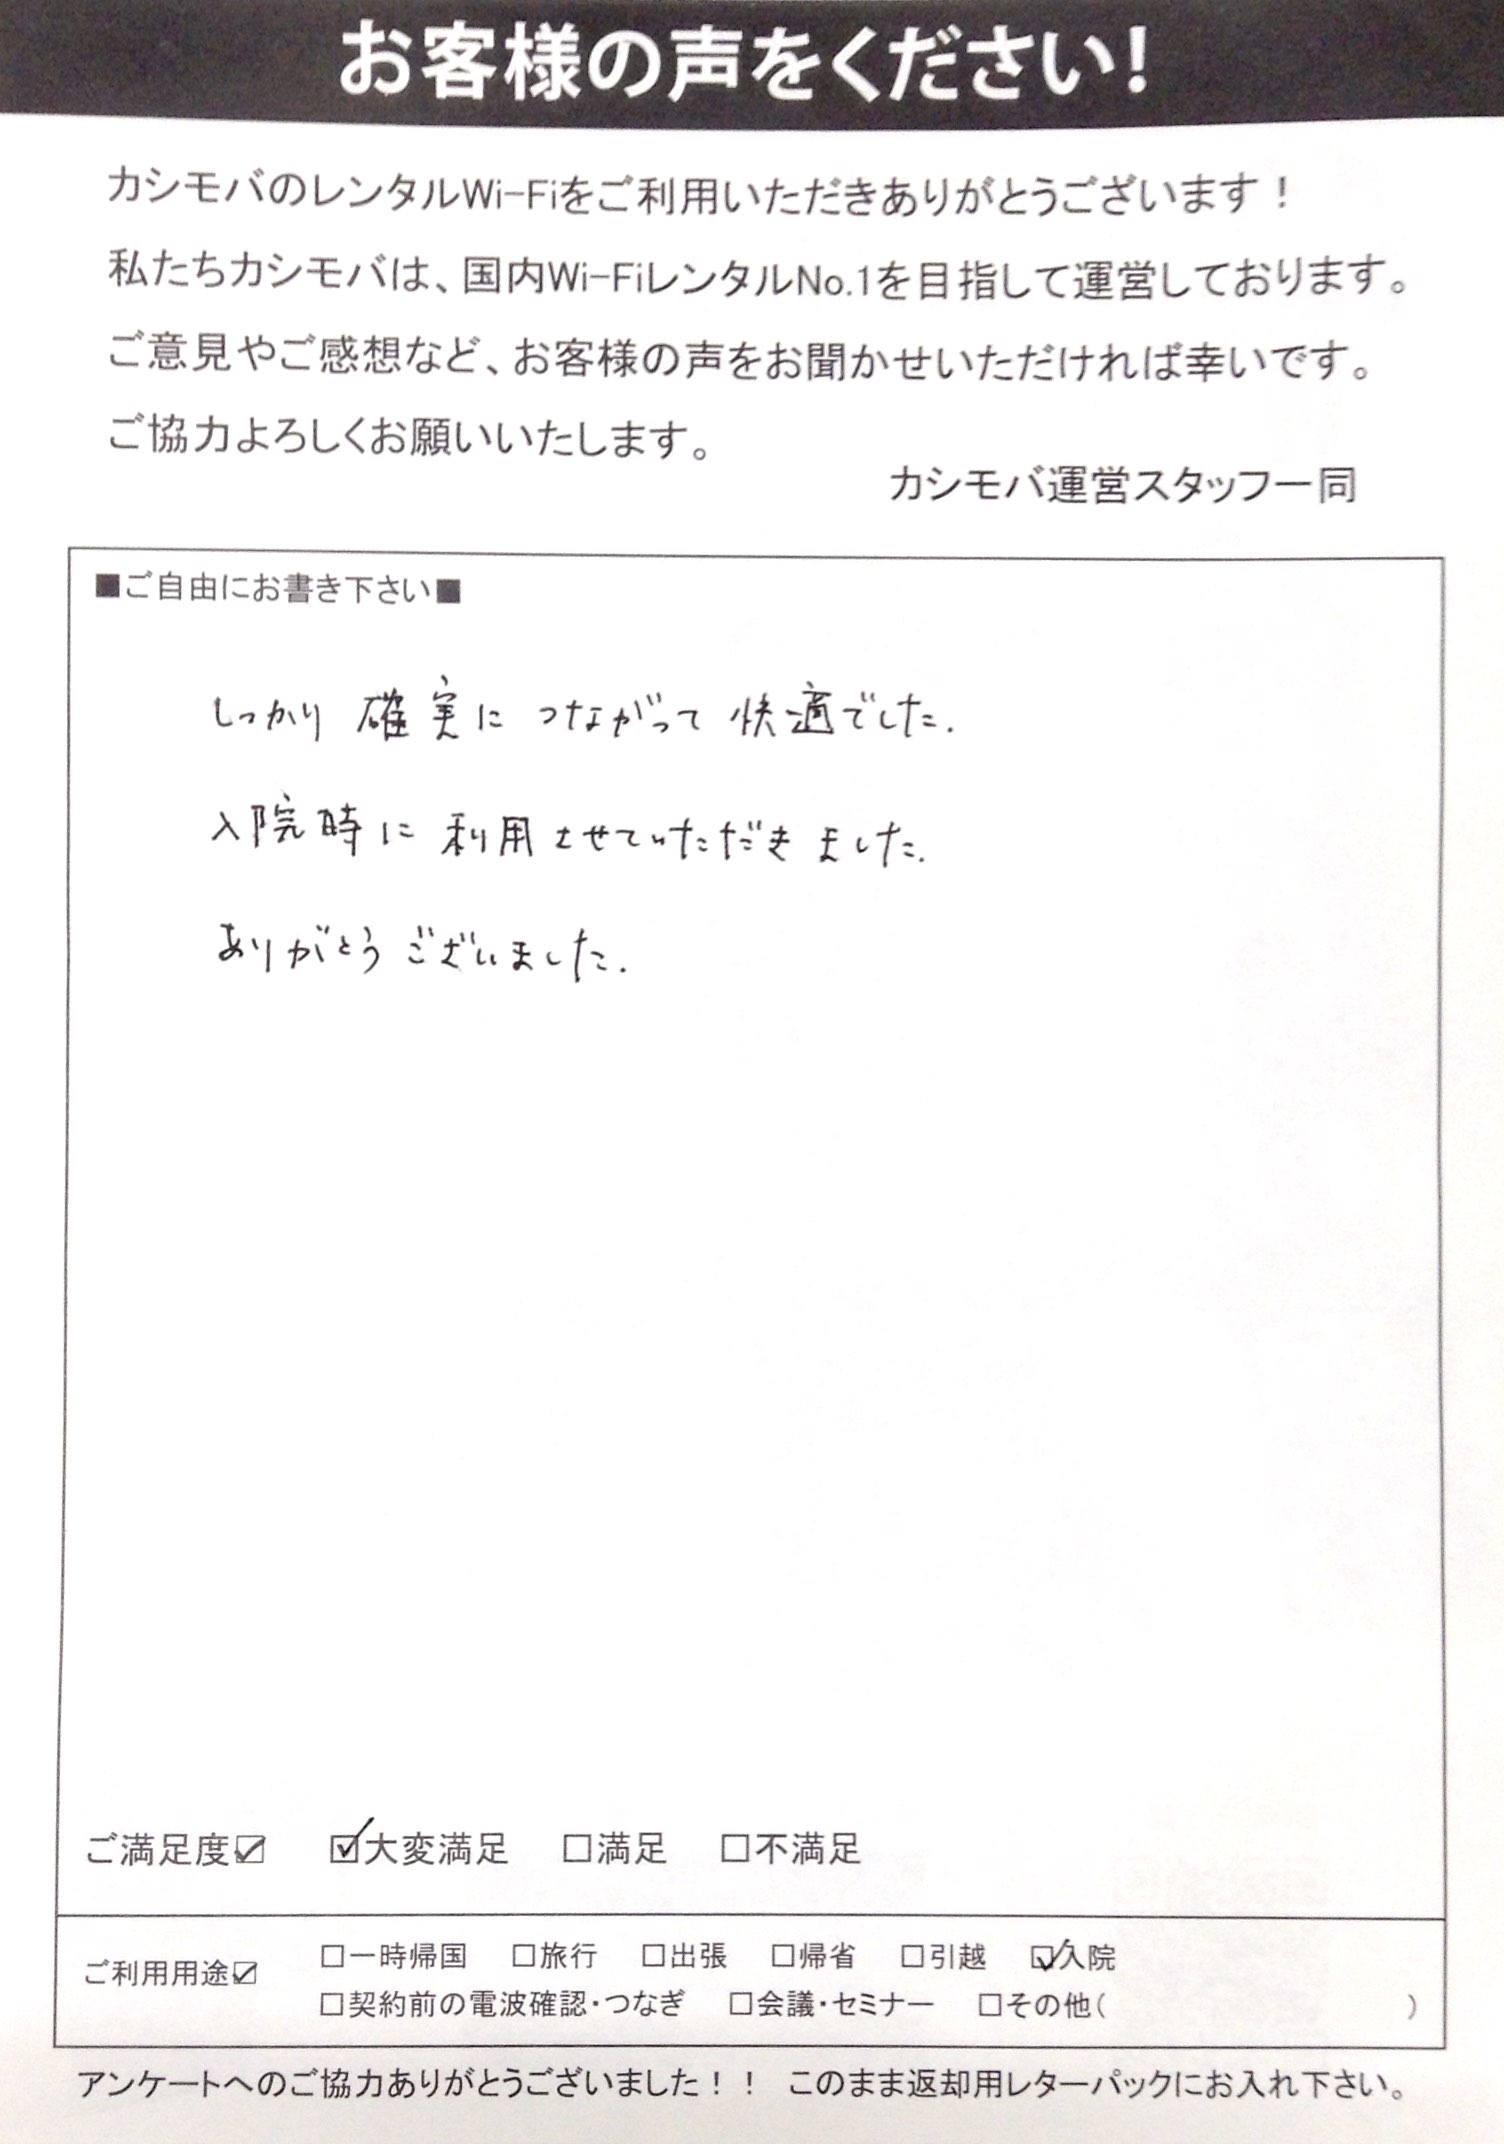 お客様の声をください!
カシモバのレンタルWi-Fiをご利用いただきありがとうございます！
私たちカシモバは、国内Wi-FiレンタルNo.1を目指して運営しております。
ご意見やご感想など、お客様の声をお聞かせいただければ幸いです。
ご協力よろしくお願いいたします。
カシモバ運営スタッフ一同
■ご自由にお書き下さい■
しっかり 確実に つながって 快適でした.
入院時に 利用させていただきました.
ありがとう ございました.
ご満足度☑ ☑大変満足 □満足 □不満足
ご利用用途☑ □一時帰国 □旅行 □出張 □帰省 □引越 ☑入院
□契約前の電波確認・つなぎ □会議・セミナー □その他( )
アンケートへのご協力ありがとうございました！！ このまま返却用レターパックにお入れ下さい。